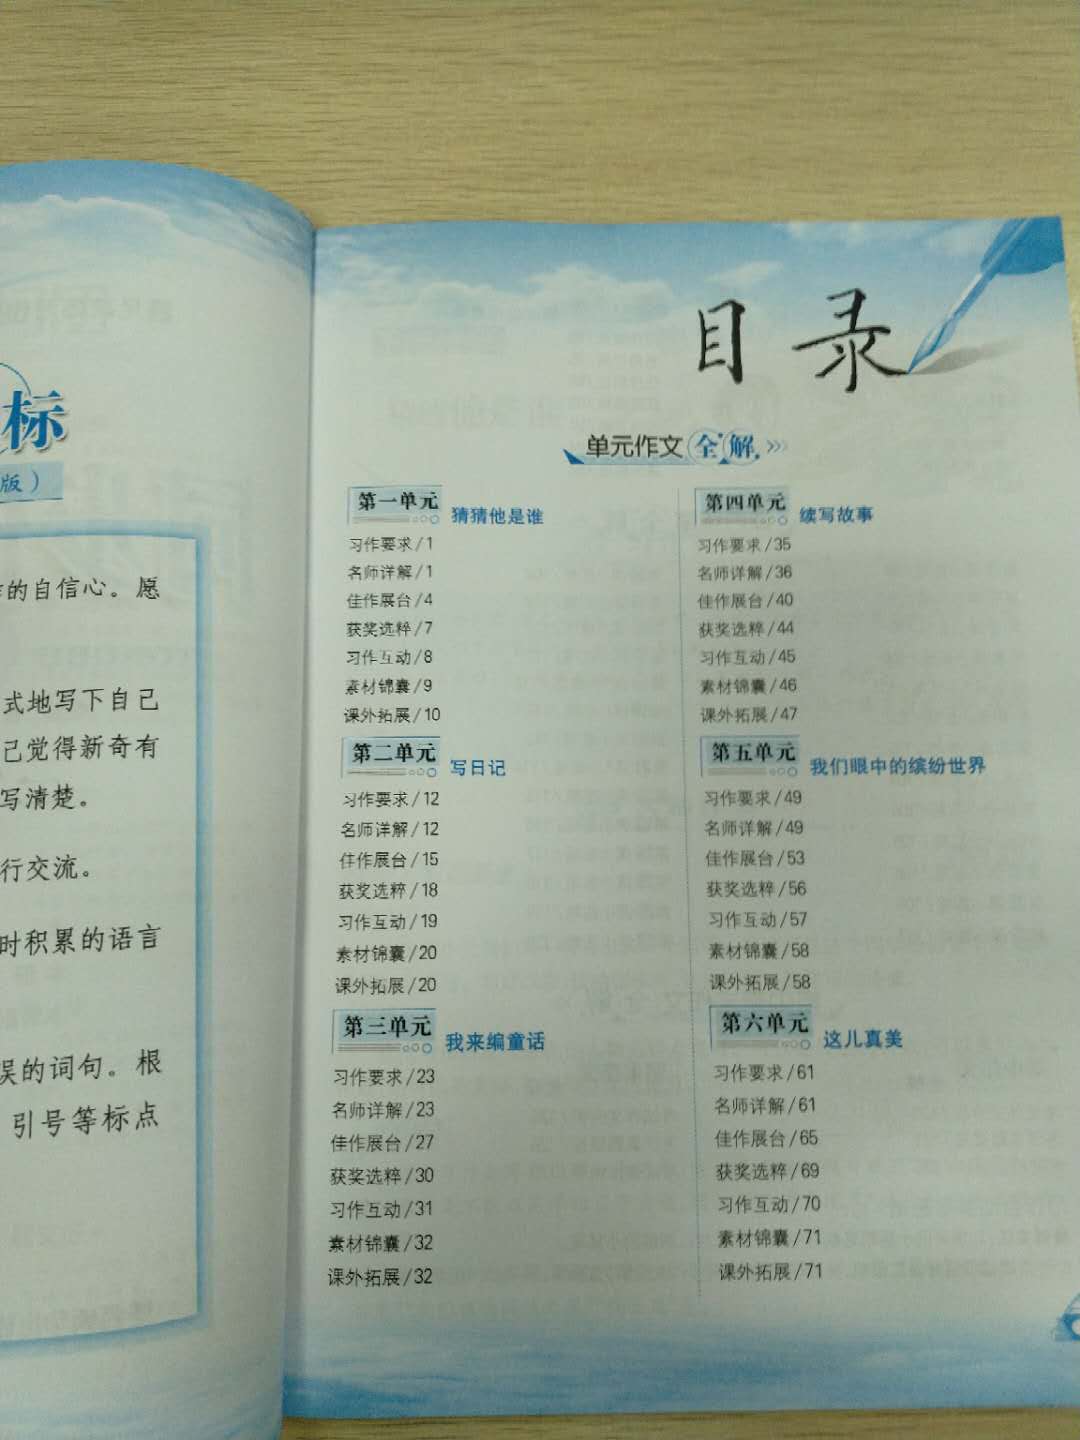 标
版）
的自信心。愿
式地写下自己
己觉得新奇有
写清楚。
行交流。
时积累的语言
误的词句。根
引号等标点
目录
单元作文全解
第一单元 猜猜他是谁
习作要求/1
名师详解/1
佳作展台/4
获奖选粹/7
习作互动/8
素材锦囊/9
课外拓展/10
第二单元 写日记
习作要求/12
名师详解/12
佳作展台/15
获奖选粹/18
习作互动/19
素材锦囊/20
课外拓展/20
第三单元 我来编童话
习作要求/23
名师详解/23
佳作展台/27
获奖选粹/30
习作互动/31
素材锦囊/32
课外拓展/32
第四单元 续写故事
习作要求/35
名师详解/36
佳作展台/40
获奖选粹/44
习作互动/45
素材锦囊/46
课外拓展/47
第五单元 我们眼中的缤纷世界
习作要求/49
名师详解/49
佳作展台/53
获奖选粹/56
习作互动/57
素材锦囊/58
课外拓展/58
第六单元 这儿真美
习作要求/61
名师详解/61
佳作展台/65
获奖选粹/69
习作互动/70
素材锦囊/71
课外拓展/71